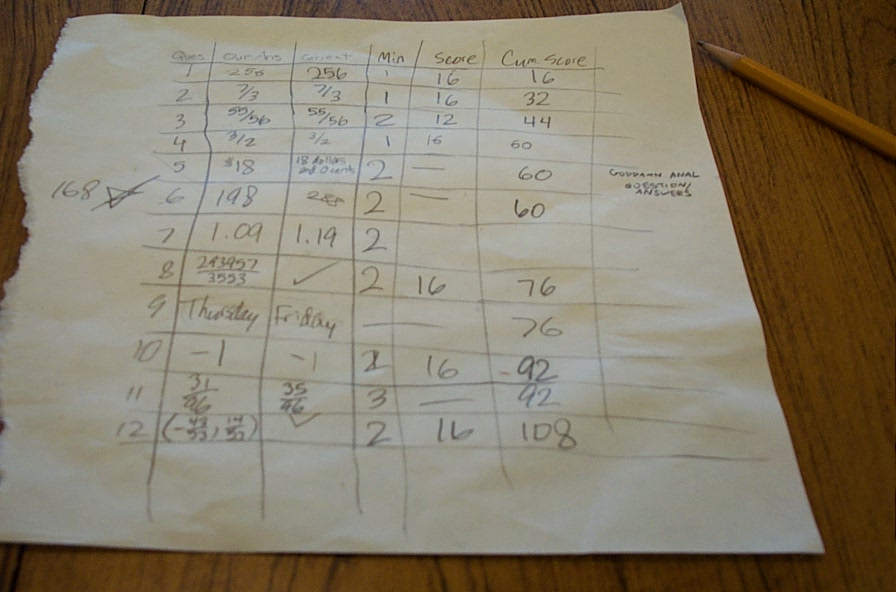 Ques Our Ans Correct Min Score Cum. Score
1 256 256 1 16 16
2 7/3 7/3 1 16 32
3 55/56 55/56 2 12 44
4 3/2 3/2 1 16 60
5 $18 18 dollars and 0 cents 2 — 60 GODDAMN ANAL
QUESTION/
ANSWERS
168 6 198 288 2 — 60
7 1.09 1.19 2
8 293957/3553 ✓ 2 16 76
9 Thursday Friday — 76
10 -1 -1 2 16 92
11 31/96 35/96 3 — 92
12 ✓ 2 16 108